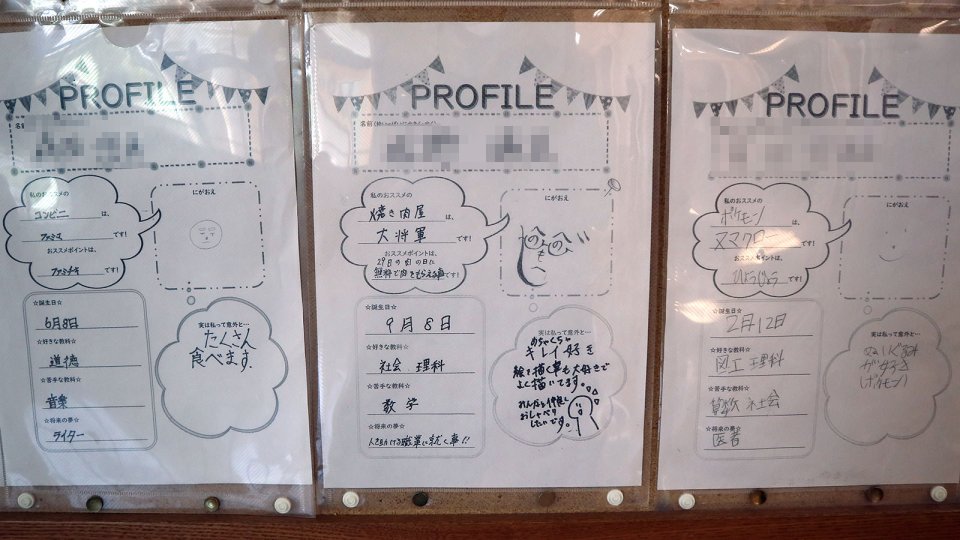 PROFILE
名前
私のおススメの
コンビニ は、
ファミマ です!
おススメポイントは、
ファミチキ です!
にがおえ
☆誕生日☆
6月8日
☆好きな教科☆
道徳
☆苦手な教科☆
音楽
☆将来の夢☆
ライター
実は私って意外と…
たくさん
食べます。
PROFILE
名前
私のおススメの
焼き肉屋 は、
大将軍 です!
おススメポイントは、
29日の肉の日に
無料で肉をもらえる事 です!
にがおえ
☆誕生日☆
9月8日
☆好きな教科☆
社会 理科
☆苦手な教科☆
数学
☆将来の夢☆
人を助ける職業に就く事!!
実は私って意外と…
めちゃくちゃ
キレイ好き
絵を描く事も大好きで
よく描いてます。
みんなと仲良く
おしゃべり
したいです。
PROFILE
私のおススメの
ポケモン は、
ヌマクロー です!
おススメポイントは、
ひょうじょう です!
にがおえ
☆誕生日☆
2月12日
☆好きな教科☆
図工 理科
☆苦手な教科☆
算数 社会
☆将来の夢☆
医者
実は私って意外と…
ぬいぐるみ
が好き
(ポケモン)